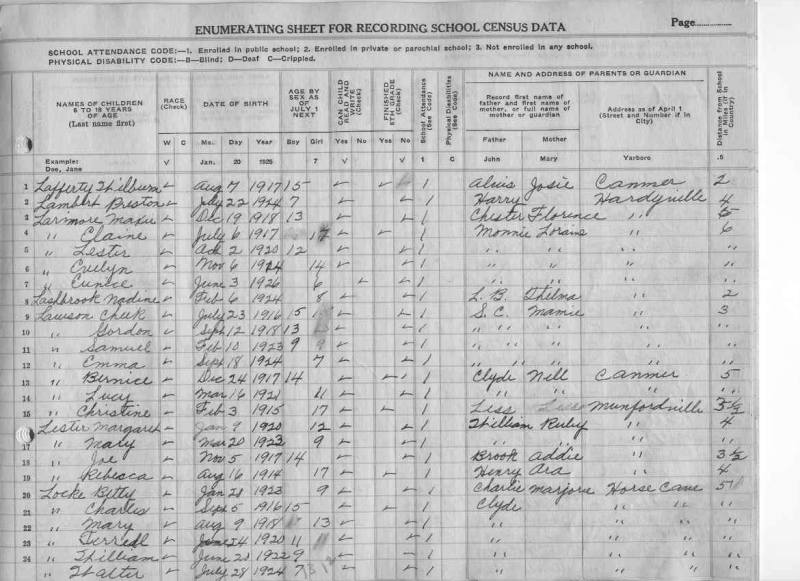 ENUMERATING SHEET FOR RECORDING SCHOOL CENSUS DATA
Page
SCHOOL ATTENDANCE CODE:—1. Enrolled in public school; 2. Enrolled in private or parochial school; 3. Not enrolled in any school.
PHYSICAL DISABILITY CODE:—B—Blind; D—Deaf C—Crippled.
NAMES OF CHILDREN 6 TO 18 YEARS OF AGE (Last name first)
RACE (Check)
W C
DATE OF BIRTH
Mo. Day Year
AGE BY SEX AS OF JULY 1 NEXT
Boy Girl
CAN CHILD READ AND WRITE (Check)
Yes No
FINISHED 8TH GRADE (Check)
Yes No
School Attendance (See Code)
Physical Disabilities (See Code)
NAME AND ADDRESS OF PARENTS OR GUARDIAN
Record first name of father and first name of mother, or full name of mother or guardian
Father Mother
Address as of April 1 (Street and Number if in City)
Distance from School in Miles (if in Country)
Example: Doe, Jane √ Jan. 20 1925 7 √ √ 1 John Mary Yarboro .5
1 Lafferty Wilburn ✓ Aug 7 1917 15 ✓ ✓ 1 Josie Canmer 2
2 Lambert Preston ✓ July 22 1924 7 ✓ ✓ 1 Harry Hardyville 4
3 Larimore ✓ Dec 19 1918 13 ✓ ✓ 1 Chester Florence " 5
4 " Claine ✓ July 6 1917 17 ✓ ✓ 1 Monnie " 6
5 " Lester ✓ 2 1920 12 ✓ ✓ 1 " " " "
6 " Evelyn ✓ Nov 6 14 ✓ ✓ 1 " " " "
7 " Eunice ✓ June 3 1926 6 ✓ ✓ 1 " " " "
8 Lashbrook Nadine ✓ Feb 6 1924 8 ✓ ✓ 1 L. B. Thelma " 2
9 Lawson ✓ July 23 1916 15 ✓ ✓ 1 S. C. Mamie " 3
10 " Gordon ✓ Sept 12 1918 13 ✓ ✓ 1 " " " "
11 " Samuel ✓ Feb 10 1923 9 ✓ ✓ 1 " " " "
12 " Emma ✓ Sept 18 1924 7 ✓ ✓ 1 " " " "
13 " Bernice ✓ Dec 24 1917 14 ✓ ✓ 1 Clyde Nell Canmer 5
14 " Lucy ✓ Mar 16 1921 11 ✓ ✓ 1 " " " "
15 " Christine ✓ Feb 3 1915 17 ✓ ✓ 1 Less Munfordville
Lester Margaret ✓ Jan 9 1920 12 ✓ ✓ 1 William Ruby " 4
17 " Mary ✓ Mar 20 1923 9 ✓ ✓ 1 " " " "
18 " Joe ✓ Nov 5 1917 14 ✓ ✓ 1 Brook Addie " 3½
19 " Rebecca ✓ Aug 16 1914 17 ✓ ✓ 1 Henry Ara " 4
20 Locke Betty ✓ Jan 21 1923 9 ✓ ✓ 1 Charlie Marjorie Horse Cave 5
21 " Charles ✓ Sept 5 1916 15 ✓ ✓ 1 Clyde " "
22 " Mary ✓ Aug 9 1918 13 ✓ ✓ 1 " " "
23 " Terrell ✓ June 24 1920 11 ✓ ✓ 1 " " "
24 " William ✓ June 21 1922 9 ✓ ✓ 1 " " "
" Walter ✓ July 28 1924 7 ✓ ✓ 1 " " "